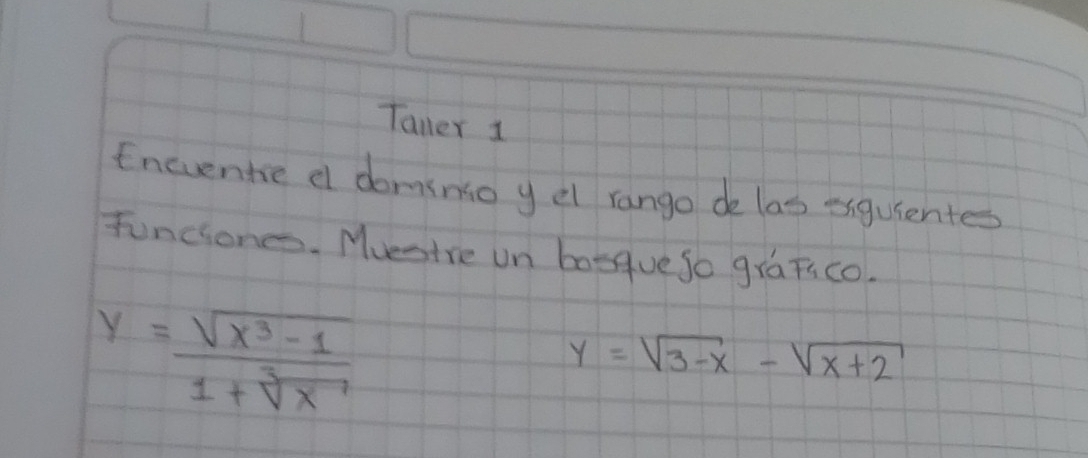 Taller 1
Encuentre el dominio y el rango de las siguientes
Funciones. Muestre un bosquejo gráfico.
y = √(x³ - 1) / (1 + ∛x)    y = √(3-x) - √(x+2)